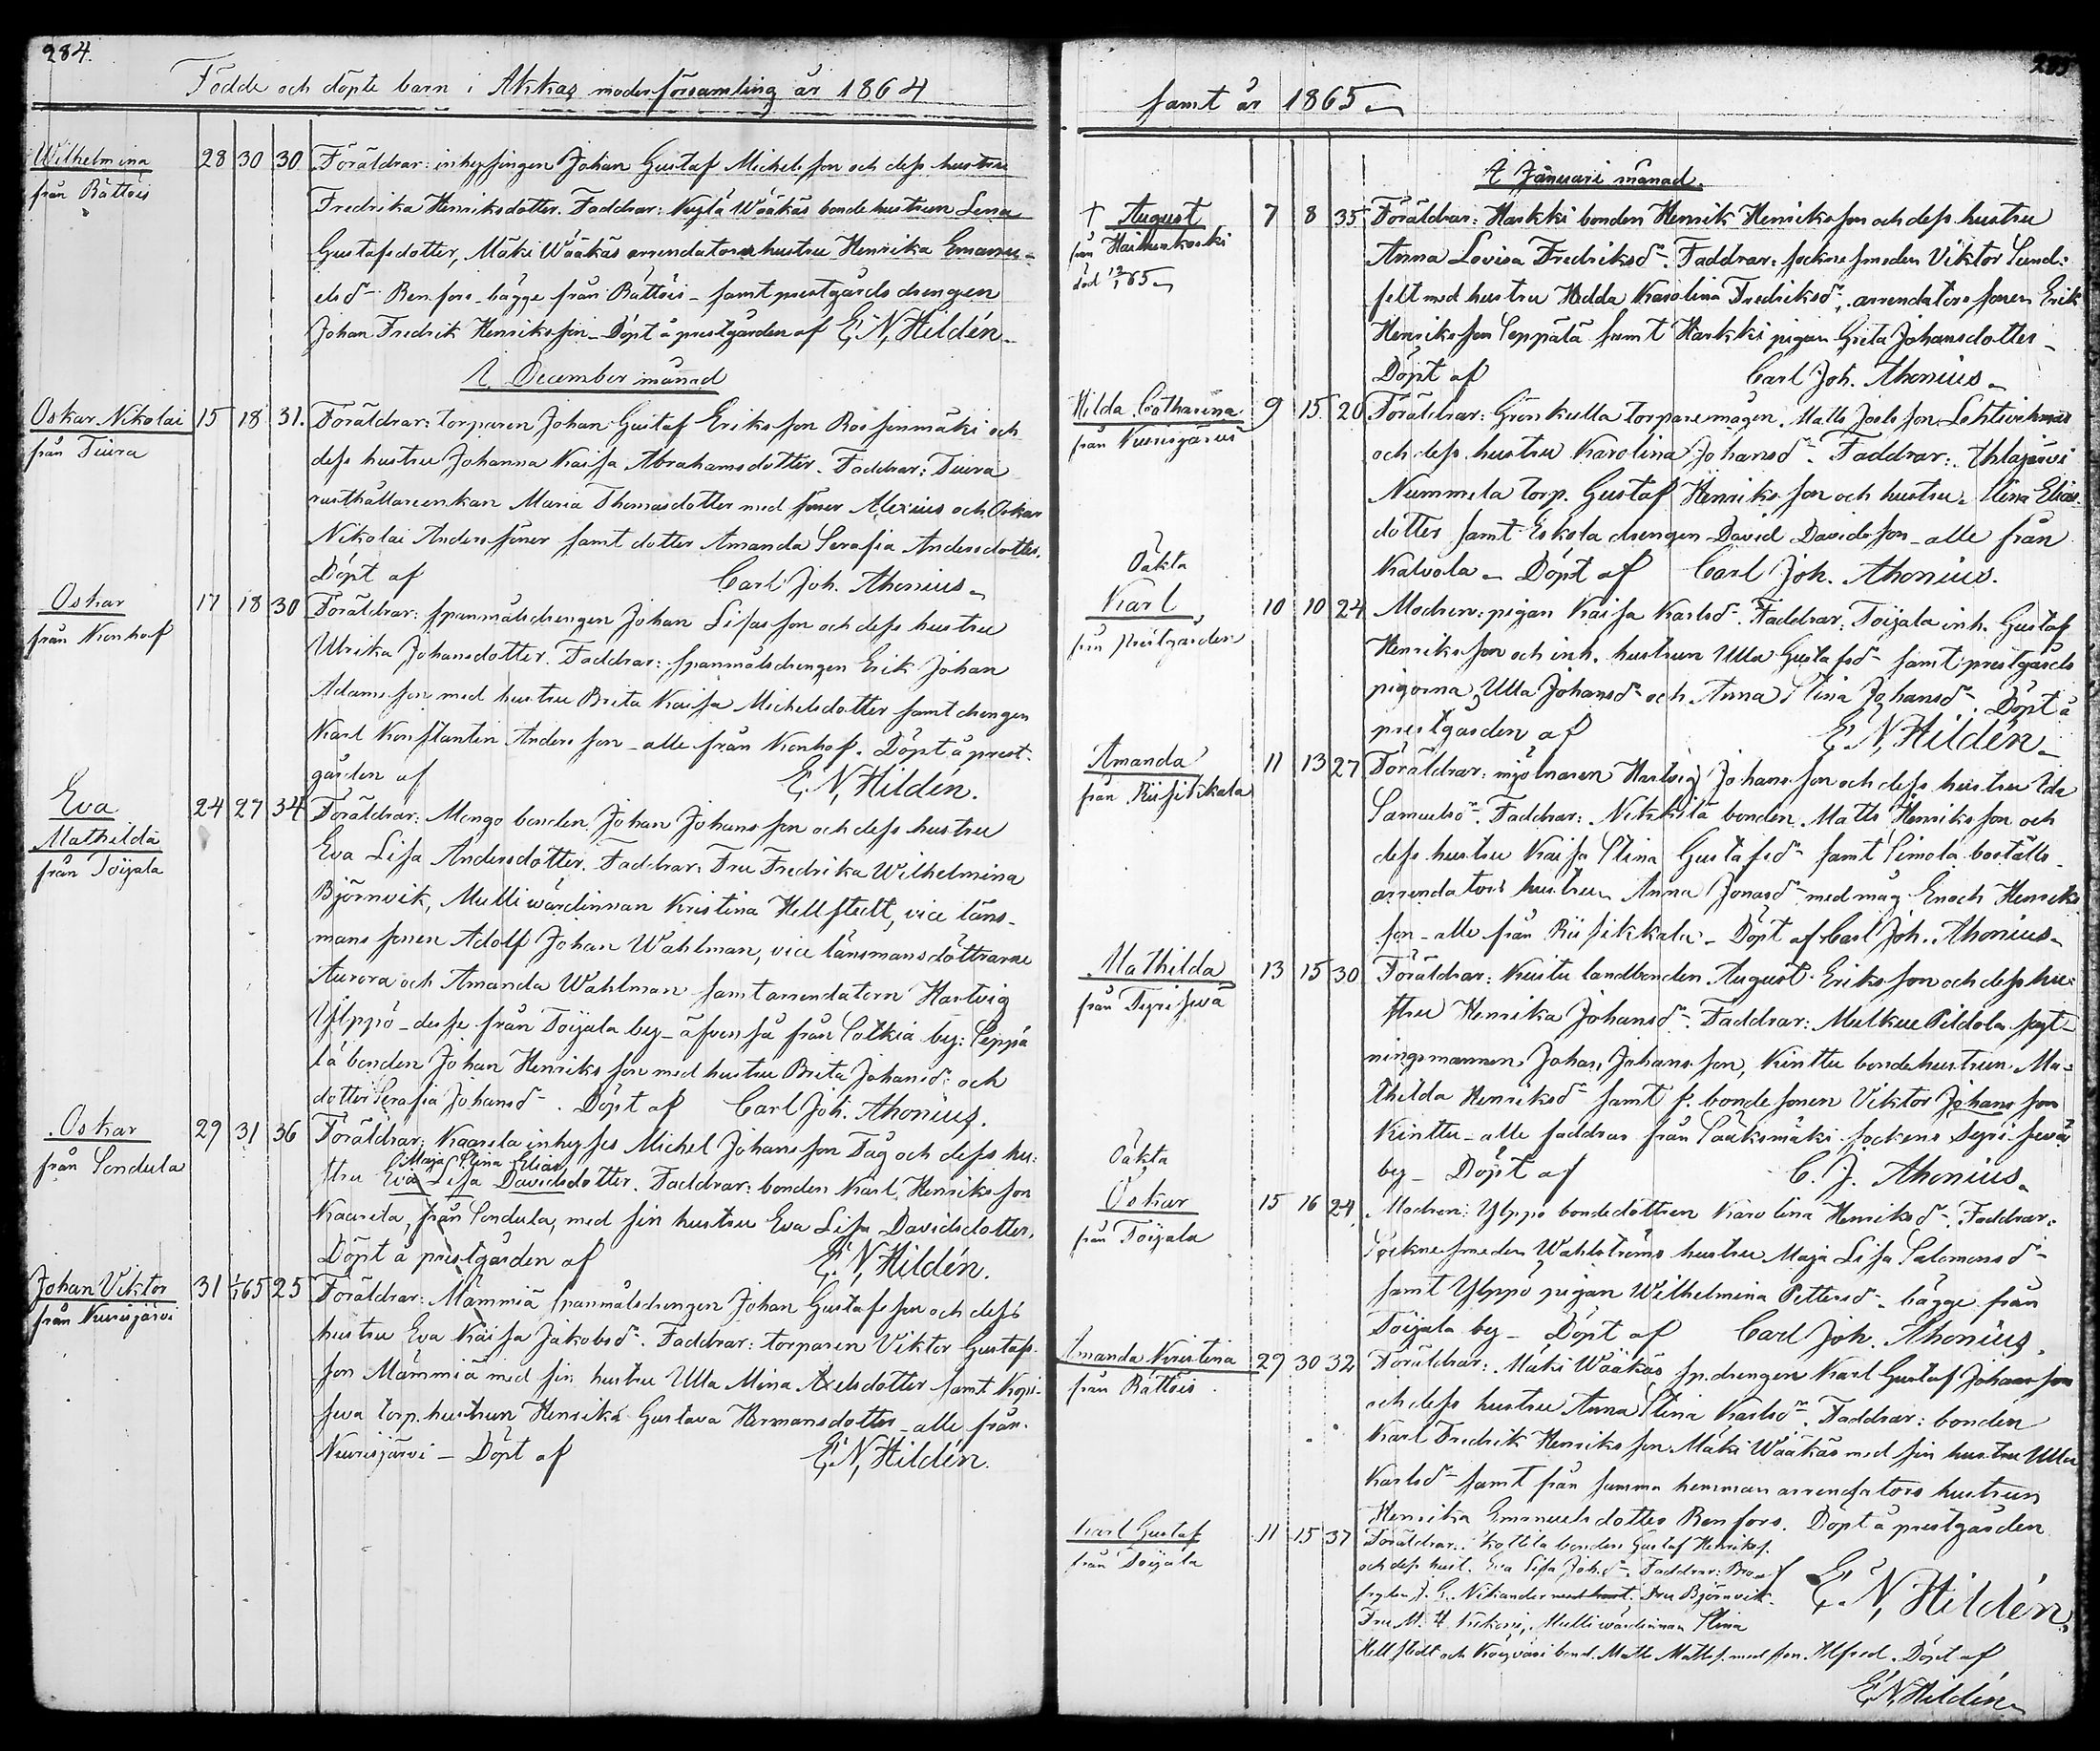 284.
Födde och döpte barn i Akkas moderförsamling år 1864
Wilhelmina 28 30 30 Föräldrar: inhysingen Johan Gustaf Michelsson och dess hustru
från Rättöis
Fredrika Henriksdotter. Faddrar: Nyglä Wääkäs bondehustrun Lena
Gustafsdotter, Mäki Wääkäs arrendators hustru Henrika Emanu-
elsdr Renfors – bägge från Rättöis – samt prestgårdsdrengen
Johan Fredrik Henriksson – Döpt å prestgården af E. N. Hildén –
I December månad
Oskar Nikolai 15 18 31. Föräldrar: torparen Johan Gustaf Eriksson Roisinmäki och
från Tiura
dess hustru Johanna Kaisa Abrahamsdotter. Faddrar: Tiura
rusthållareenkan Maria Thomasdotter med söner Alexius och Oskar
Nikolai Anderssöner samt dotter Amanda Serafia Andersdotter.
Döpt af Carl Joh. Ahonius –
Oskar 17 18 30 Föräldrar: spanmålsdrengen Johan Lisasson och dess hustru
från Kronhof
Ulrika Johansdotter. Faddrar: spanmålsdrengen Erik Johan
Adamsson med hustru Brita Kaisa Michelsdotter samt drengen
Karl Konstantin Andersson – alle från Kronhof. Döpt å prest-
gården af E. N. Hildén.
Eva 24 27 34 Föräldrar: Mongo bonden Johan Johansson och dess hustru
Mathilda
från Toijala
Eva Lisa Andersdotter. Faddrar: Fru Fredrika Wilhelmina
Björnvik, Mulli wärdinnan Kristina Hellstedt, vice läns-
mans sonen Adolf Johan Wahlman, vice länsmansdöttrarne
Aurora och Amanda Wahlman samt arrendatorn Hartvig
Ylppö – desse från Toijala by – äfvenså från Sotkia by: Seppä
lä bonden Johan Henriksson med hustru Brita Johansdr och
dotter Serafia Johansdr. Döpt af Carl Joh. Ahonius.
Oskar 29 31 36 Föräldrar: Kaarela inhyses Michel Johansson Tåg och dess hu-
från Sondula
Maja Stina Elias
stru Eva Lisa Davidsdotter. Faddrar: bonden Karl Henriksson
Kaarila, från Sondula, med sin hustru Eva Lisa Davidsdotter.
Döpt å prestgården af E. N. Hildén.
Johan Viktor 31 1/1 65 25 Föräldrar: Mämmiä spanmålsdrengen Johan Gustafsson och dess
från Kurisjärvi
hustru Eva Kaisa Jakobsdr. Faddrar: torparen Viktor Gustafs-
son Mämmiä med sin hustru Ulla Mina Axelsdotter samt Kopi-
sua torp. hustrun Henrika Gustava Hermansdotter – alle från
Kurisjärvi – Döpt af E. N. Hildén.
285
samt år 1865 –
I Januari månad.
† August 7 8 35 Föräldrar: Harkki bonden Henrik Henriksson och dess hustru
från Haihunkoski
död 65 –
Anna Lovisa Fredriksdr. Faddrar: socknesmeden Viktor Sund-
felt med hustru Hedda Karolina Fredriksdr, arrendators sonen Erik
Henriksson Seppälä samt Harkki pigan Greta Johansdotter –
Döpt af Carl Joh. Ahonius –
Hilda Catharina 9 15 20 Föräldrar: Grönkulla torparemågen Matts Joelsson Lehtivehmas
från Kurisjärvi
och dess hustru Karolina Johansdr. Faddrar: Ahlajärvi
Nummela torp. Gustaf Henriksson och hustru Stina Elias
dotter samt Eskola drengen David Davidsson – alle från
Kalvola – Döpt af Carl Joh. Ahonius.
Oäkta
Karl 10 10 24 Modren: pigan Kaisa Karlsdr. Faddrar: Toijala inh. Gustaf
från prestgården
Henriksson och inh. hustrun Ulla Gustafsdr samt prestgårds
pigorna Ulla Johansdr och Anna Stina Johansdr. Döpt å
prestgården af E. N. Hildén –
Amanda 11 13 27 Föräldrar: mjölnaren Hartvig Johansson och dess hustru Ida
från Riisikkala
Samuelsdr. Faddrar: Nikkilä bonden Matts Henriksson och
dess hustru Kaisa Stina Gustafsdr samt Simola boställs-
arrendators hustrun Anna Jonasdr med måg Enoch Henriks
son – alle från Riisikkala – Döpt af Carl Joh. Ahonius –
Mathilda 13 15 30 Föräldrar: Kustu landbonden August Eriksson och dess hu-
från Tyrisevä
stru Henrika Johansdr. Faddrar: Mulkue Pildola syt-
ningsmannen Johan Johansson, Kinttu bondehustrun Ma-
thilda Henriksdr samt f. bonde sonen Viktor Johansson
Kinttu – alle faddrar från Sääksmäki sockens Tyrisevä
by – Döpt af C. J. Ahonius –
Oäkta
Oskar 15 16 24 Modren: Ylppö bondedottren Karolina Henriksdr. Faddrar:
från Toijala
Socknesmeden Wahlströms hustru Maja Lisa Salomonsdr
samt Ylppö pigan Wilhelmina Pettersdr – bägge från
Toijala by – Döpt af Carl Joh. Ahonius.
Amanda Kristina 29 30 32 Föräldrar: Mäki Wääkäs sp.drengen Karl Gustaf Johansson
från Rättöis
och dess hustru Anna Stina Karlsdr. Faddrar: bonden
Karl Fredrik Henriksson Mäki Wääkäs med sin hustru Ulla
Karlsdr samt från samma hemman arrendators hustrun
Henrika Emanuelsdotter Renfors. Döpt å prestgården
af E. N. Hildén
Karl Gustaf 11 15 37 Föräldrar: Kottila bonden Gustaf Henrikss.
från Toijala
och dess hust. Eva Lisa Johsdr. Faddrar: Bro-
fogden J. G. Nikander med hust. Fru Björnvik
Fru M. H. Mulli wärdinnan Stina
Hellstedt och bond. Matts Mattss. med son Alfred. Döpt af
E. N. Hildén –